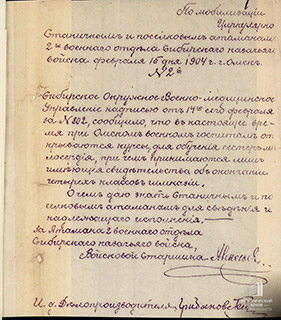 По мобилизации
Циркулярно
Станичным и поселковым атаманам
2го военного отдѣла Сибирскаго казачьяго
войска февраля 16 дня 1904 г. г. Омскъ
№ 26
Сибирское Окружное Военно-Медицинское
Управленіе надписью отъ 14го сего февраля
за № 802, сообщило, что въ настоящее вре-
мя при Омскомъ военномъ госпиталѣ от-
крываются курсы, для обученія сестеръ ми-
лосердія, при чемъ принимаются лица
имѣющія свидѣтельства объ окончаніи
четырехъ классовъ гимназіи.
О чемъ даю знать Станичнымъ и по-
селковымъ атаманамъ для свѣдѣнія и
надлежащаго исполненія.—
За Атамана 2 военнаго отдѣла
Сибирскаго казачьяго войска,
Войсковой Старшина
И. д. Дѣлопроизводителя,